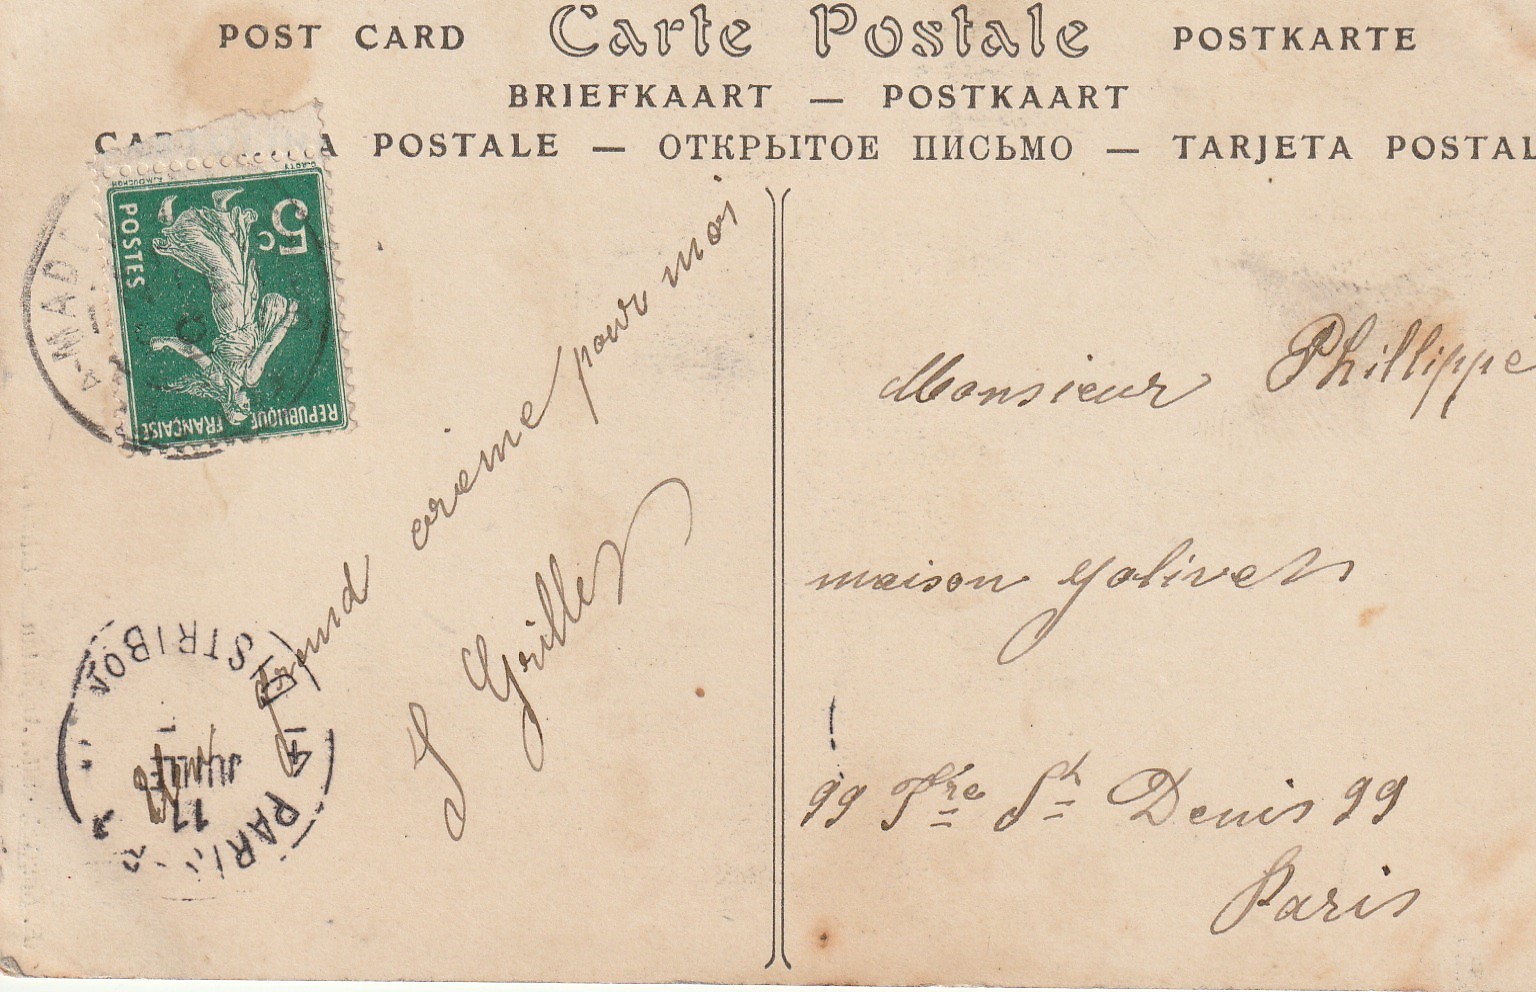 POST CARD Carte Postale POSTKARTE
BRIEFKAART — POSTKAART
POSTALE — ОТКРЫТОЕ ПИСЬМО — TARJETA POSTAL
5c
POSTES
REPUBLIQUE FRANÇAISE
MAD
grand crème pour moi
J Grillet
PARIS
DISTRIBON
17
JUILLET
Monsieur Phillippe
maison Jolivet
99 Fbre St Denis 99
Paris